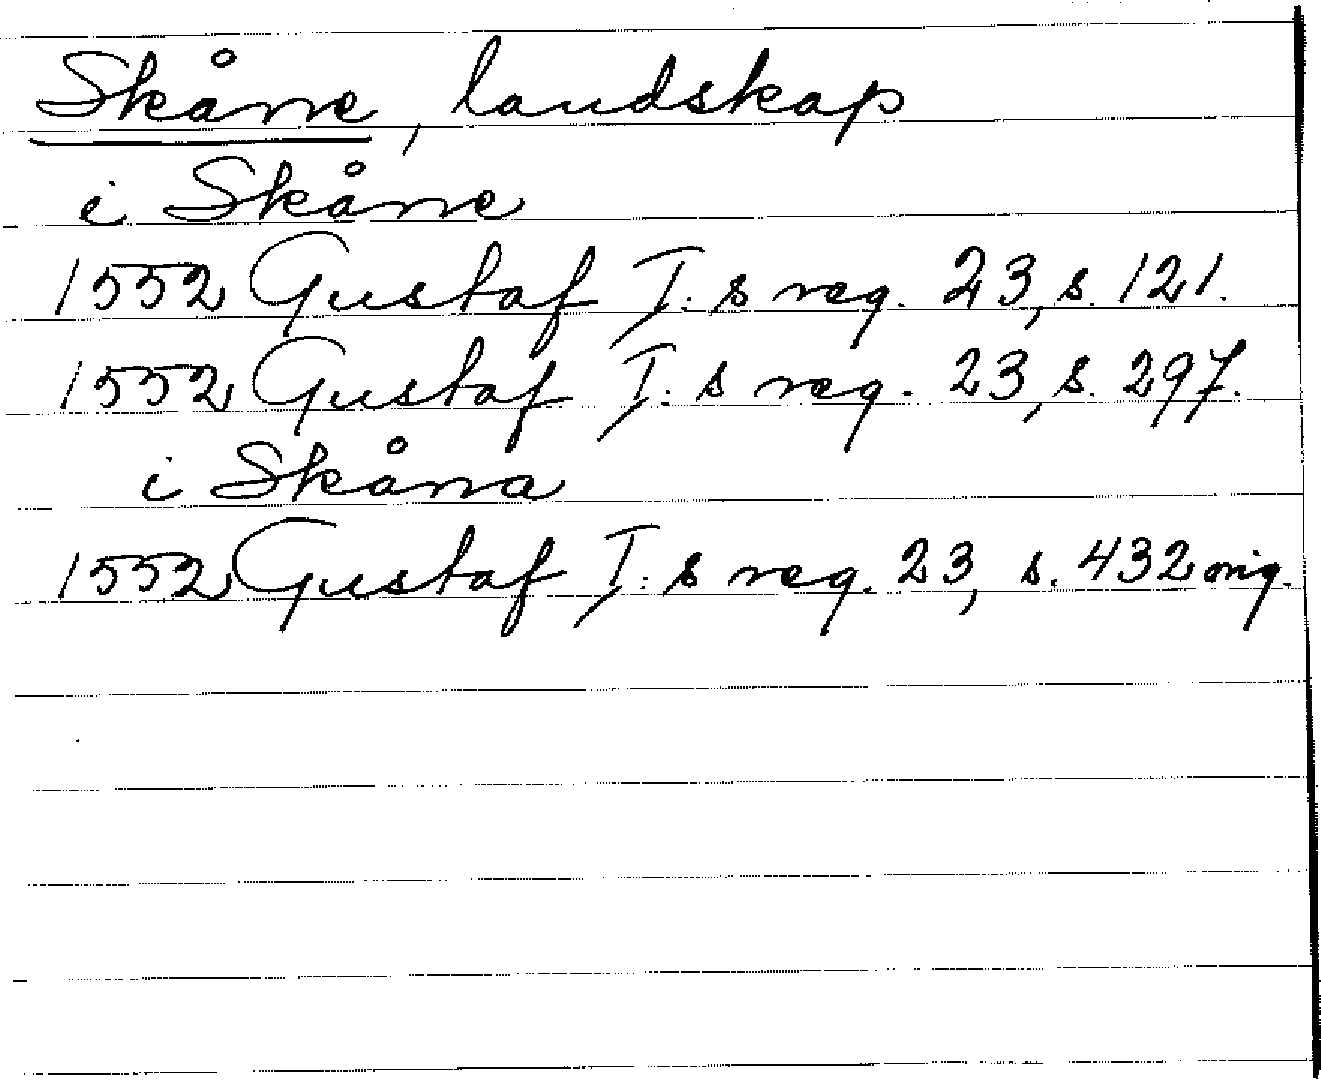 Skåne, landskap
i Skåne
1552 Gustaf I:s reg. 23, s. 121.
1552 Gustaf I:s reg. 23, s. 297.
i Skåna
1552 Gustaf I:s reg. 23, s. 432 orig.